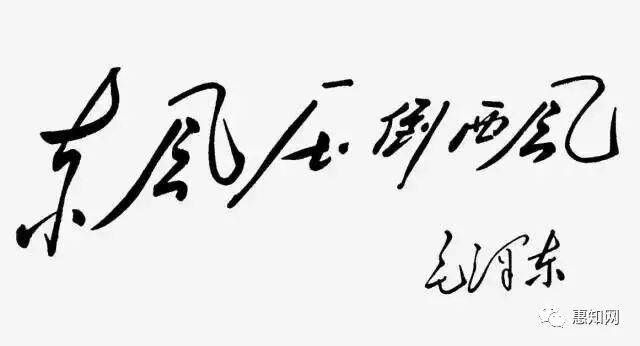 东风压倒西风
毛泽东
惠知网